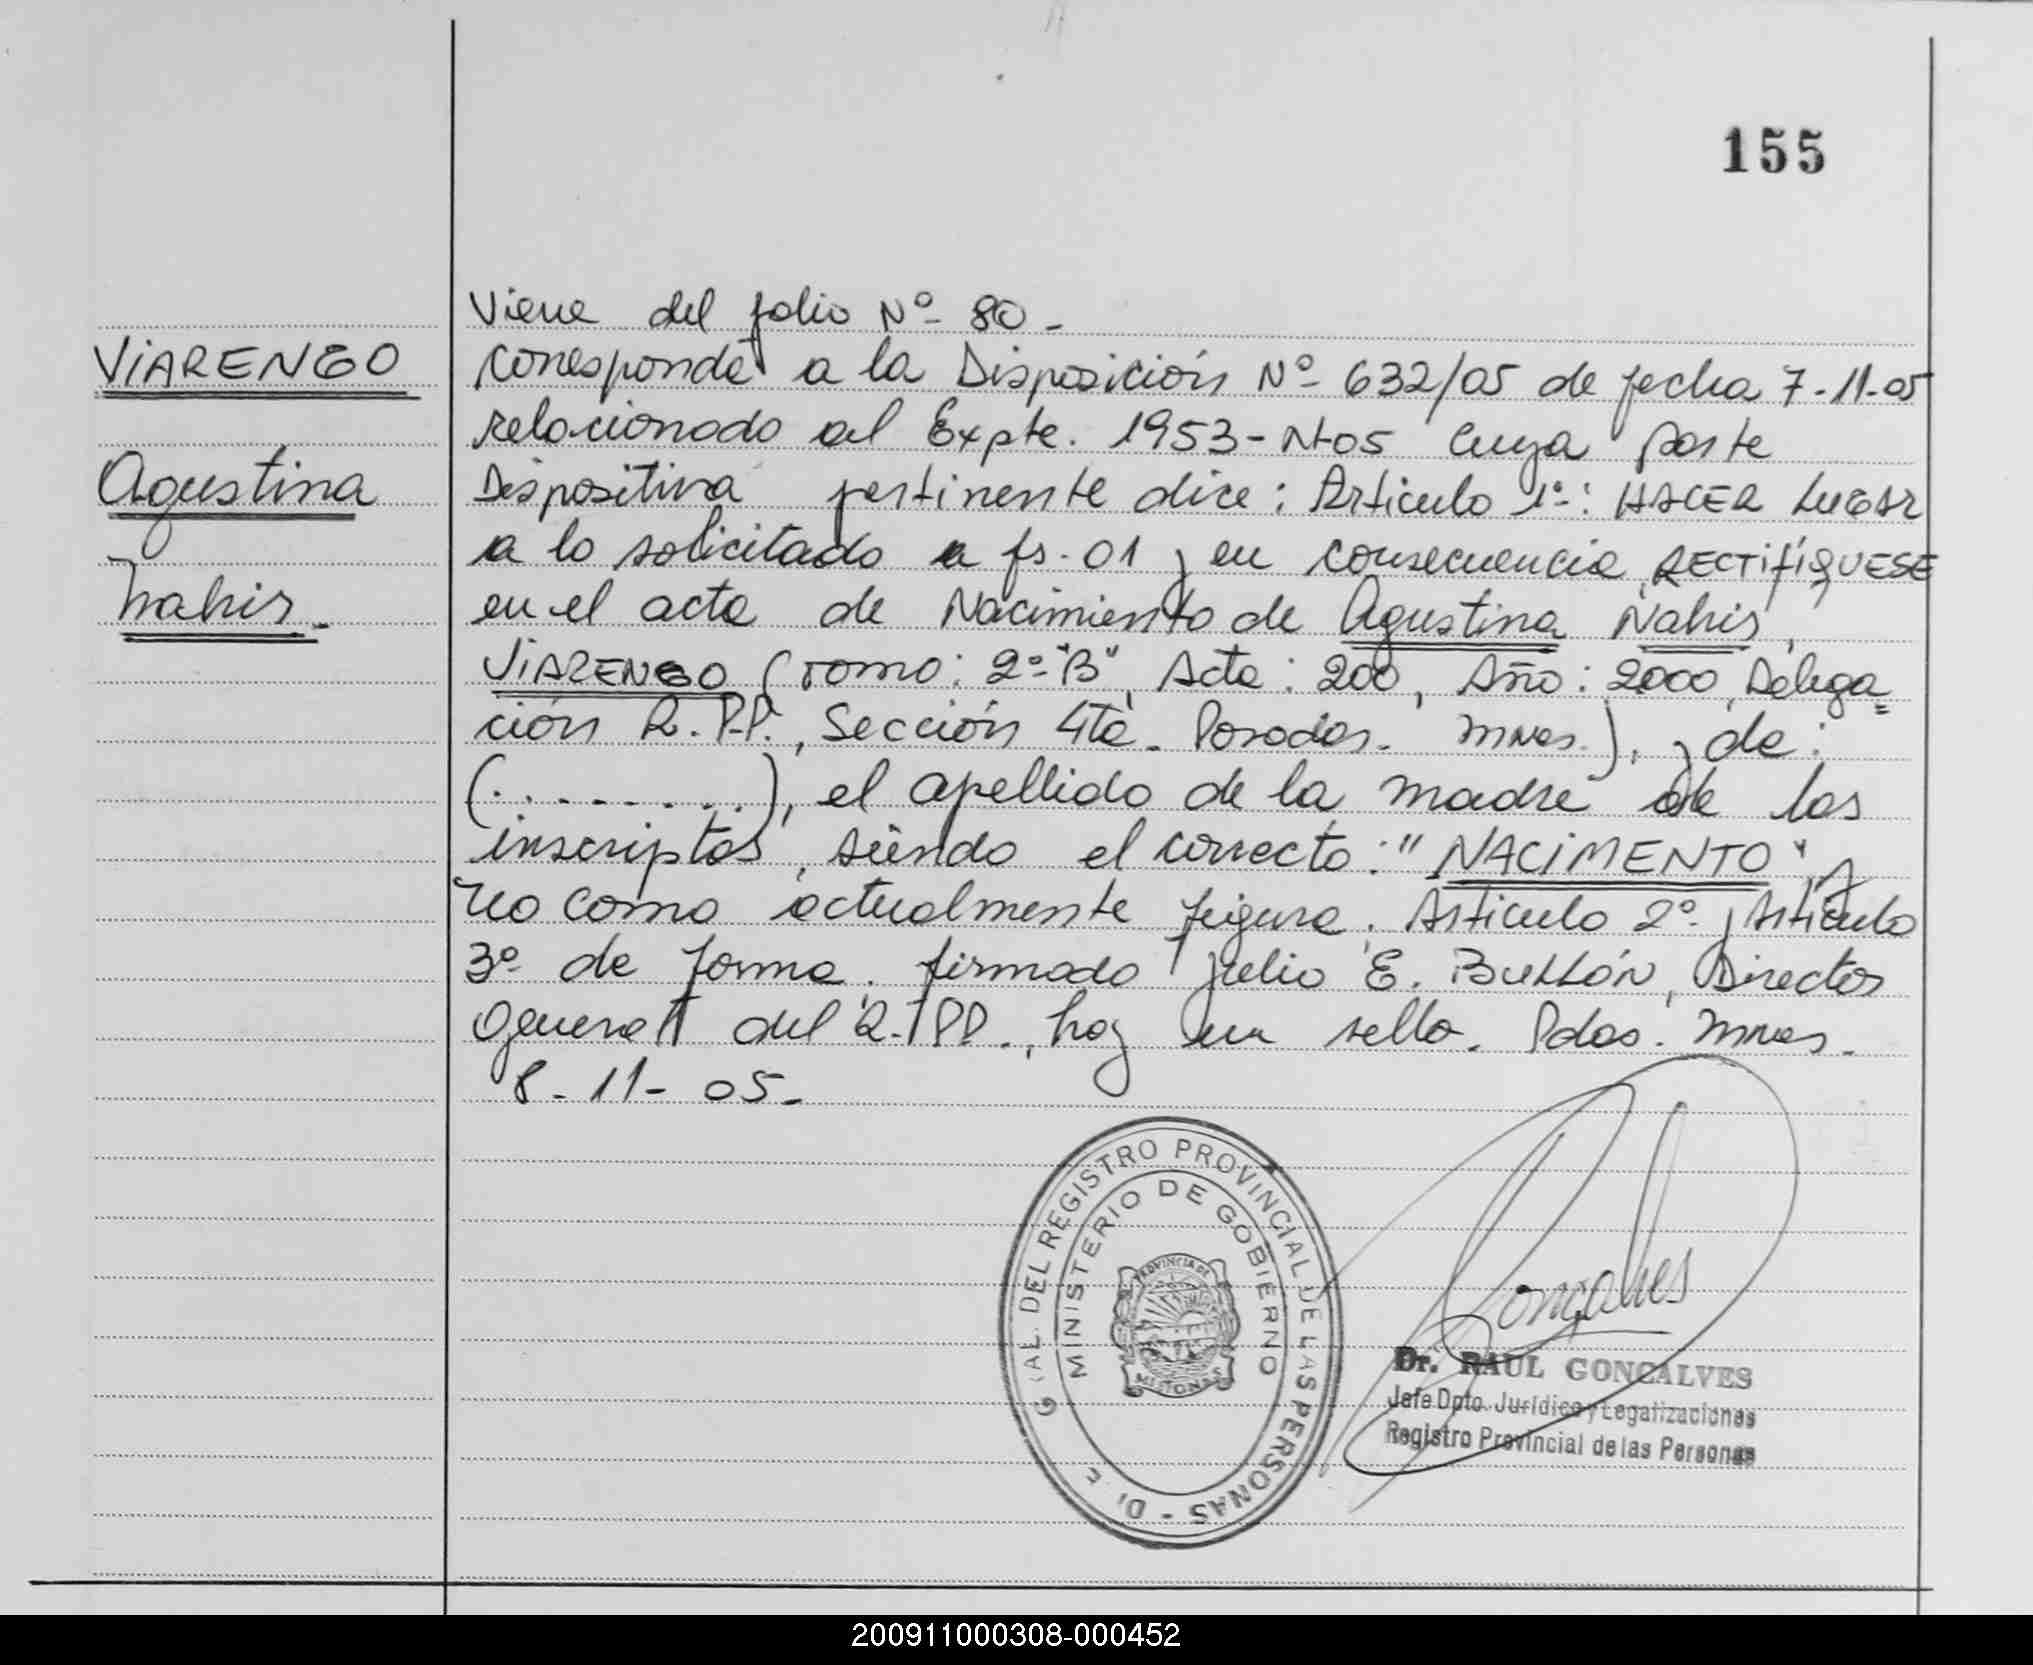 155
Viene del folio Nº 80 -
VIARENGO
corresponde a la Disposición Nº 632/05 de fecha 7-11-05
relacionado al Expte. 1953-N-05 cuya parte
Agustina
Dispositiva pertinente dice: Artículo 1º: HACER LUGAR
a lo solicitado a fs. 01 y en consecuencia RECTIFIQUESE
Nahir -
en el acta de Nacimiento de Agustina Nahir,
VIARENGO (Tomo: 2º "B", Acta: 200, Año: 2000, Delega=
ción R.P.P., Sección 4ta. Posadas. Mnes.), de:
(. . . . . . . .), el apellido de la madre de los
inscriptos, siendo el correcto: "NACIMENTO" y
no como actualmente figura. Artículo 2º y Artículo
3º de forma. firmado Julio E. BULLÓN, Director
General del R.PP., hay un sello. Pdas. Mnes.
8-11-05.-
GRAL. DEL REGISTRO PROVINCIAL DE LAS PERSONAS - DI
MINISTERIO DE GOBIERNO
PROVINCIA DE
MISIONES
Gonçalves
Dr. RAUL GONCALVES
Jefe Dpto. Jurídico y Legalizaciones
Registro Provincial de las Personas
200911000308-000452